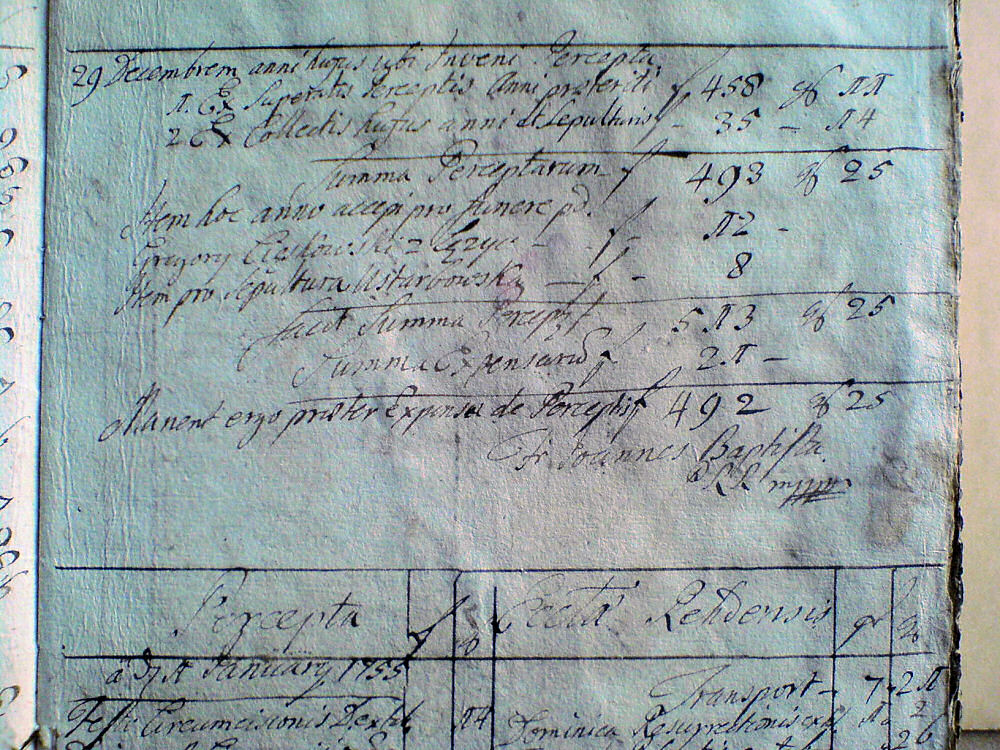 29 Decembrem anni hujus ubi Inveni Percepta
1. Ex Superatis Perceptis Anni præteriti f 458 gf 11
2 Ex Collectis hujus anni et Sepulturis f - 35 - 14
Summa Perceptarum f 493 gf 25
Item hoc anno accepi pro funere pd.
Gregory z f - 12 -
Item pro Sepultura Ustarbowska - f - 8
facit Summa Percept f 513 gf 25
Summa Expensarū f 21 -
Manent ergo præter Expensas de Perceptis f 492 gf 25
Fr Joannes Baptista
mppr
Percepta f Ecclæ Rehdensis gr
a d 1 January 1755
Transport - 7 - 21
Festo Circumcisionis D 14 Dominica Resurrectionis